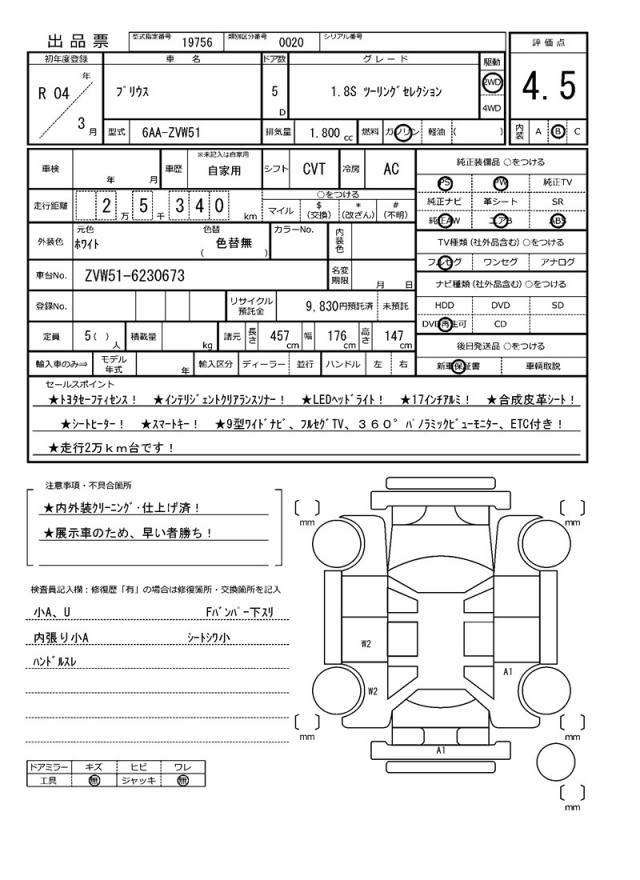 出品票 型式指定番号 19756 類別区分番号 0020 シリアル番号
初年度登録 車名 ドア数 グレード 駆動 評価点
R 04 年 3 月 プリウス 5 D 1.8S ツーリングセレクション 2WD 4WD 4.5
型式 6AA-ZVW51 排気量 1.800 cc 燃料 ガソリン 軽油 ( ) 内装 A B C
車検 年 月 車歴 ※未記入は自家用 自家用 シフト CVT 冷房 AC 純正装備品 ○をつける
PS PW 純正TV
走行距離 2 万 5 千 3 4 0 km ○をつける マイル $ (交換) * (改ざん) # (不明) 純正ナビ 革シート SR
純正AW エアB ABS
外装色 元色 ホワイト 色替 ( 色替無 ) カラーNo. 内装色 TV種類 (社外品含む) ○をつける
フルセグ ワンセグ アナログ
車台No. ZVW51-6230673 名変期限 月 日 ナビ種類 (社外品含む) ○をつける
登録No. リサイクル預託金 9,830円預託済 未預託 HDD DVD SD
DVD再生可 CD
定員 5( ) 人 積載量 kg 諸元 長さ 457 cm 幅 176 cm 高さ 147 cm 後日発送品 ○をつける
輸入車のみ⇒ モデル年式 年 輸入区分 ディーラー 並行 ハンドル 左 右 新車保証書 車輌取説
セールスポイント
★トヨタセーフティセンス! ★インテリジェントクリアランスソナー! ★LEDヘッドライト! ★17インチアルミ! ★合成皮革シート!
★シートヒーター! ★スマートキー! ★9型ワイドナビ、フルセグTV、360°パノラミックビューモニター、ETC付き!
★走行2万km台です!
注意事項・不具合箇所
★内外装クリーニング・仕上げ済!
★展示車のため、早い者勝ち!
検査員記入欄:修復歴「有」の場合は修復箇所・交換箇所を記入
小A、U Fバンパー下スリ
内張り小A シートシワ小
ハンドルスレ
ドアミラー キズ ヒビ ワレ
工具 無 ジャッキ 無
[ ] mm
[ ] mm
W2
A1
W2
[ ] mm
[ ] mm
A1
[ ] mm